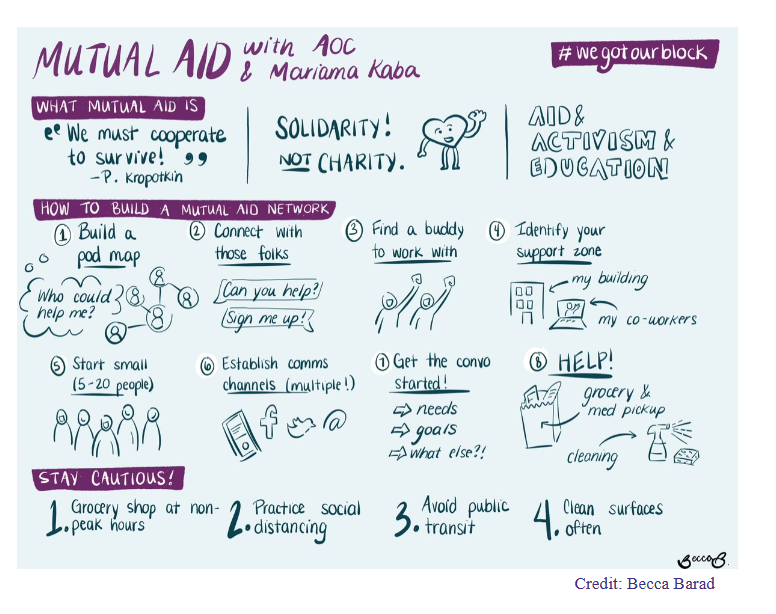 MUTUAL AID with AOC
& Mariama Kaba
#wegotourblock
WHAT MUTUAL AID IS
"We must cooperate
to survive!"
-P. Kropotkin
SOLIDARITY!
NOT CHARITY.
AID &
ACTIVISM &
EDUCATION!
HOW TO BUILD A MUTUAL AID NETWORK
1 Build a
pod map
Who could
help me?
2 Connect with
those folks
Can you help?
Sign me up!
3 Find a buddy
to work with
4 Identify your
support zone
my building
my co-workers
5 Start small
(5-20 people)
6 Establish comms
channels (multiple!)
f
@
7 Get the convo
started!
⇨ needs
⇨ goals
⇨ what else?!
8 HELP!
grocery &
med pickup
cleaning
STAY CAUTIOUS!
1. Grocery shop at non-
peak hours
2. Practice social
distancing
3. Avoid public
transit
4. Clean surfaces
often
BeccaB.
Credit: Becca Barad